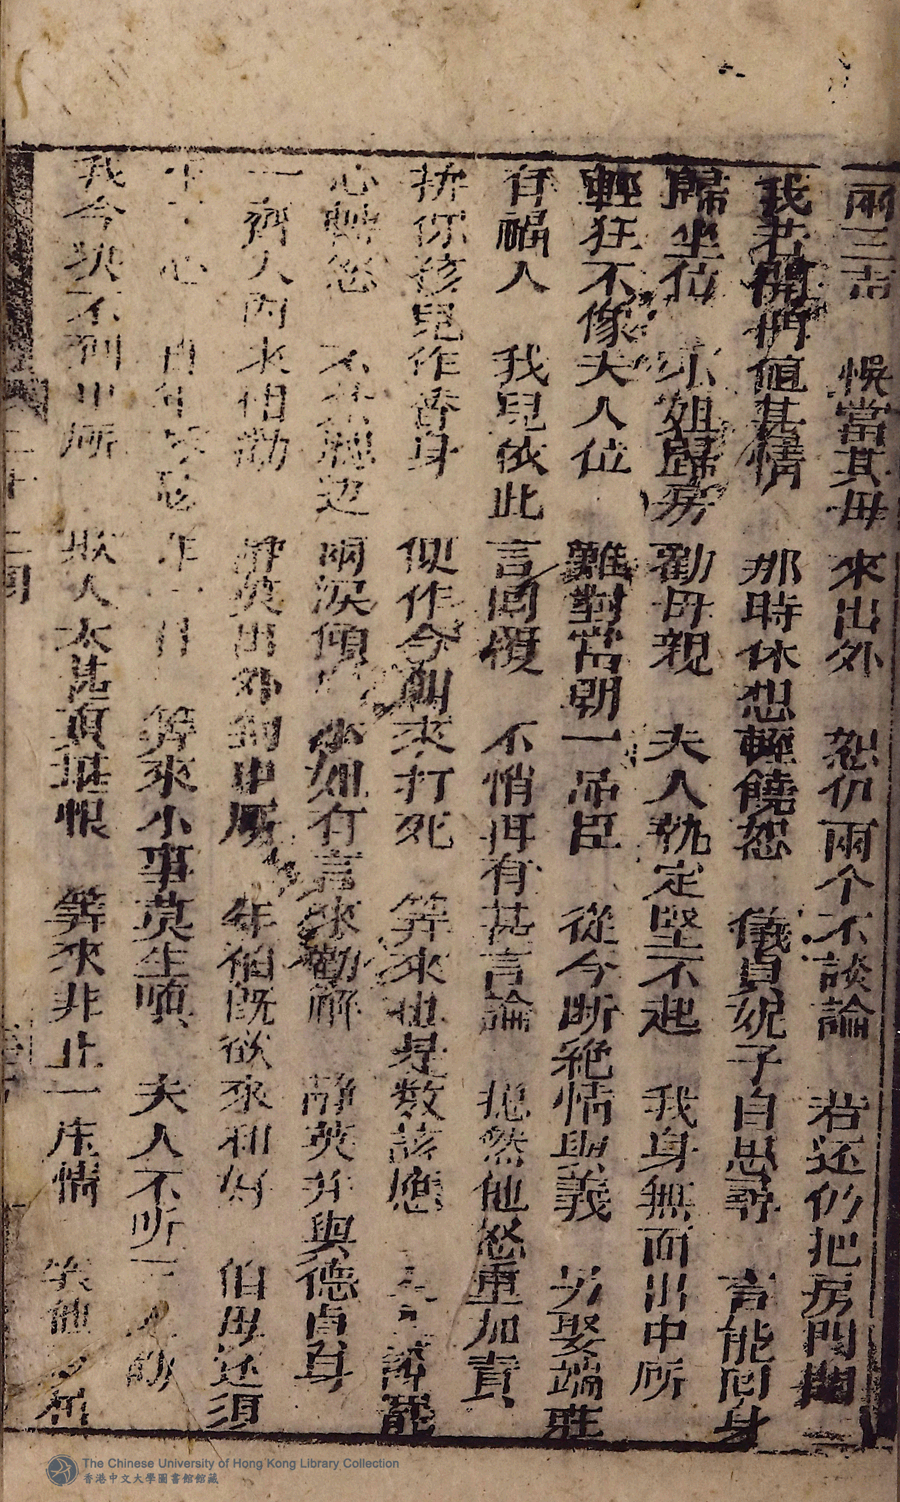 兩三言 悞當其母來出外 恕伊兩个不談論 若还仍把房門閉
我若開门值甚情 那時休想輕饒恕 儀貞妮子自思尋 言能回身
歸坐位 小姐歸房勸母親 夫人執定堅不起 我身無面出中所
輕狂不像夫人位 難對當朝一品臣 從今断絶情與義 另娶端莊
有福人 我兒依此言回覆 不悄再有甚言論 拋然他怒重加責
拚你孩兒作香身 便作今朝來打死 筭來也是数該應 夫人語罷
心轉怒 不禁腮边兩淚傾 小姐有言來勸解 静英并與德貞身
一齊人內來相勸 静英出外到中所 年伯既欲來和好 伯母还須
心 筭來小事莫生嗔 夫人不听
我今决不到中所 欺人太甚真堪恨 筭來非止一庄情 笑他
二十二回
The Chinese University of Hong Kong Library Collection
香港中文大學圖書館館藏